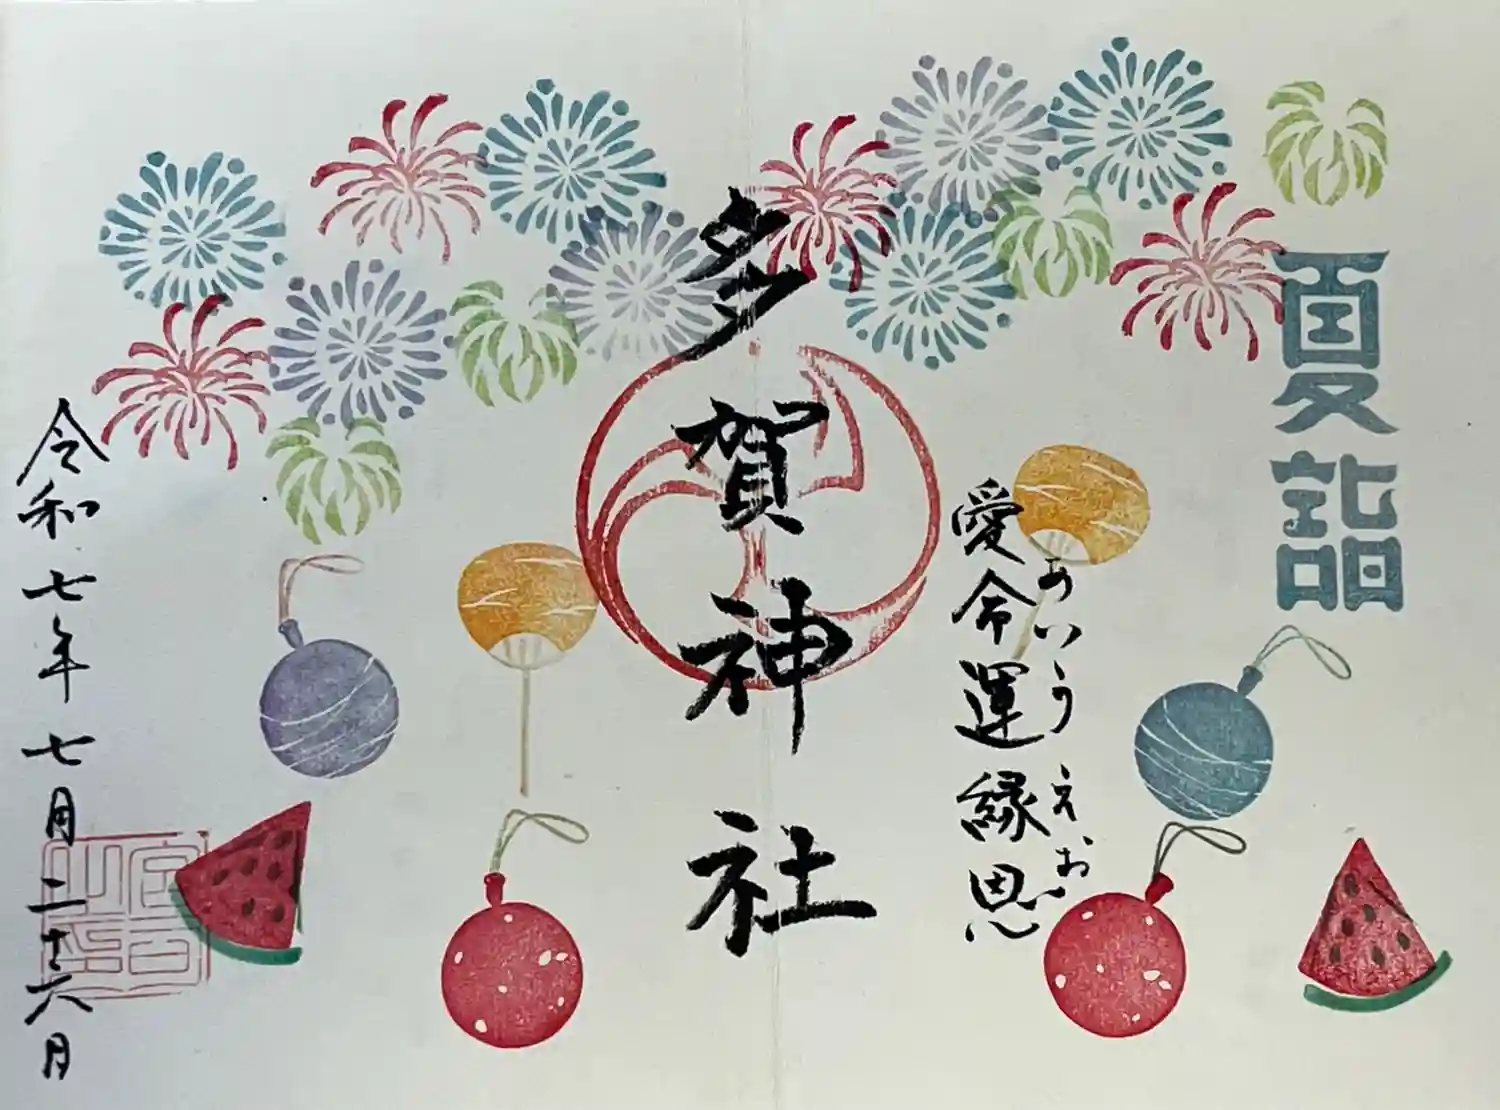 夏詣
あいうえお
愛命運縁恩
多賀神社
令和七年七月二十六日
宮司之印